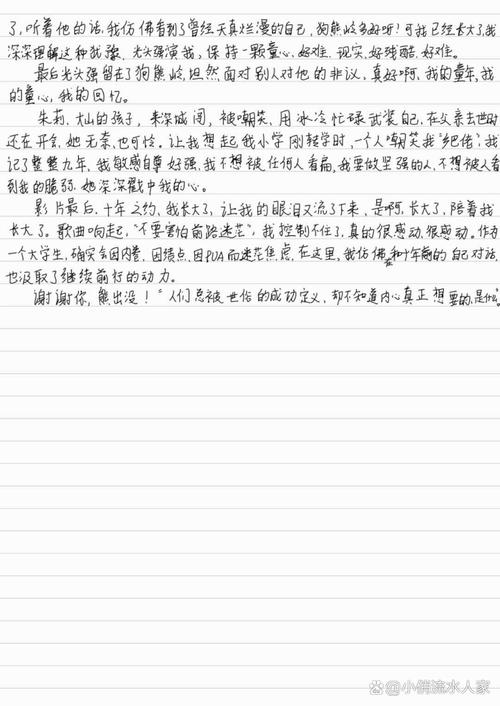 了,听着他的话,我仿佛看到了曾经天真烂漫的自己,狗熊岭多好听!可我已经长大了,我
深深理解这种犹豫.光头强演我,保持一颗童心,好难.现实,好残酷,好难.
最后光头强留在了狗熊岭,坦然面对别人对他的非议,真好啊,我的童年,我
的童心,我的回忆.
朱莉,大山的孩子,来深城闯,被嘲笑、用冰冷忙碌武装自己,在父亲去世时
还在开会,她无奈,也可怜.让我想起我小学刚转学时,一个人嘲笑我"乡巴佬",我
记了整整九年、我敏感自尊好强、我不想被任何人看扁,我要做坚强的人,不想被人看
到我的脆弱.她深深戳中我的心。
影片最后,十年之约,我长大了,让我的眼泪又流了下来,是啊,长大了,陪着我
长大了。歌曲响起,"不要害怕前路迷茫",我控制不住了,真的很感动、很感动。作为
一个大学生,确实会因内卷、因绩点、因PUA而迷茫焦虑,在这里,我仿佛和十年前的自己对话
也汲取了继续前行的动力。
谢谢你,熊出没!"人们总被世俗的成功定义,却不知道内心真正想要的是什么."
@小俏流水人家